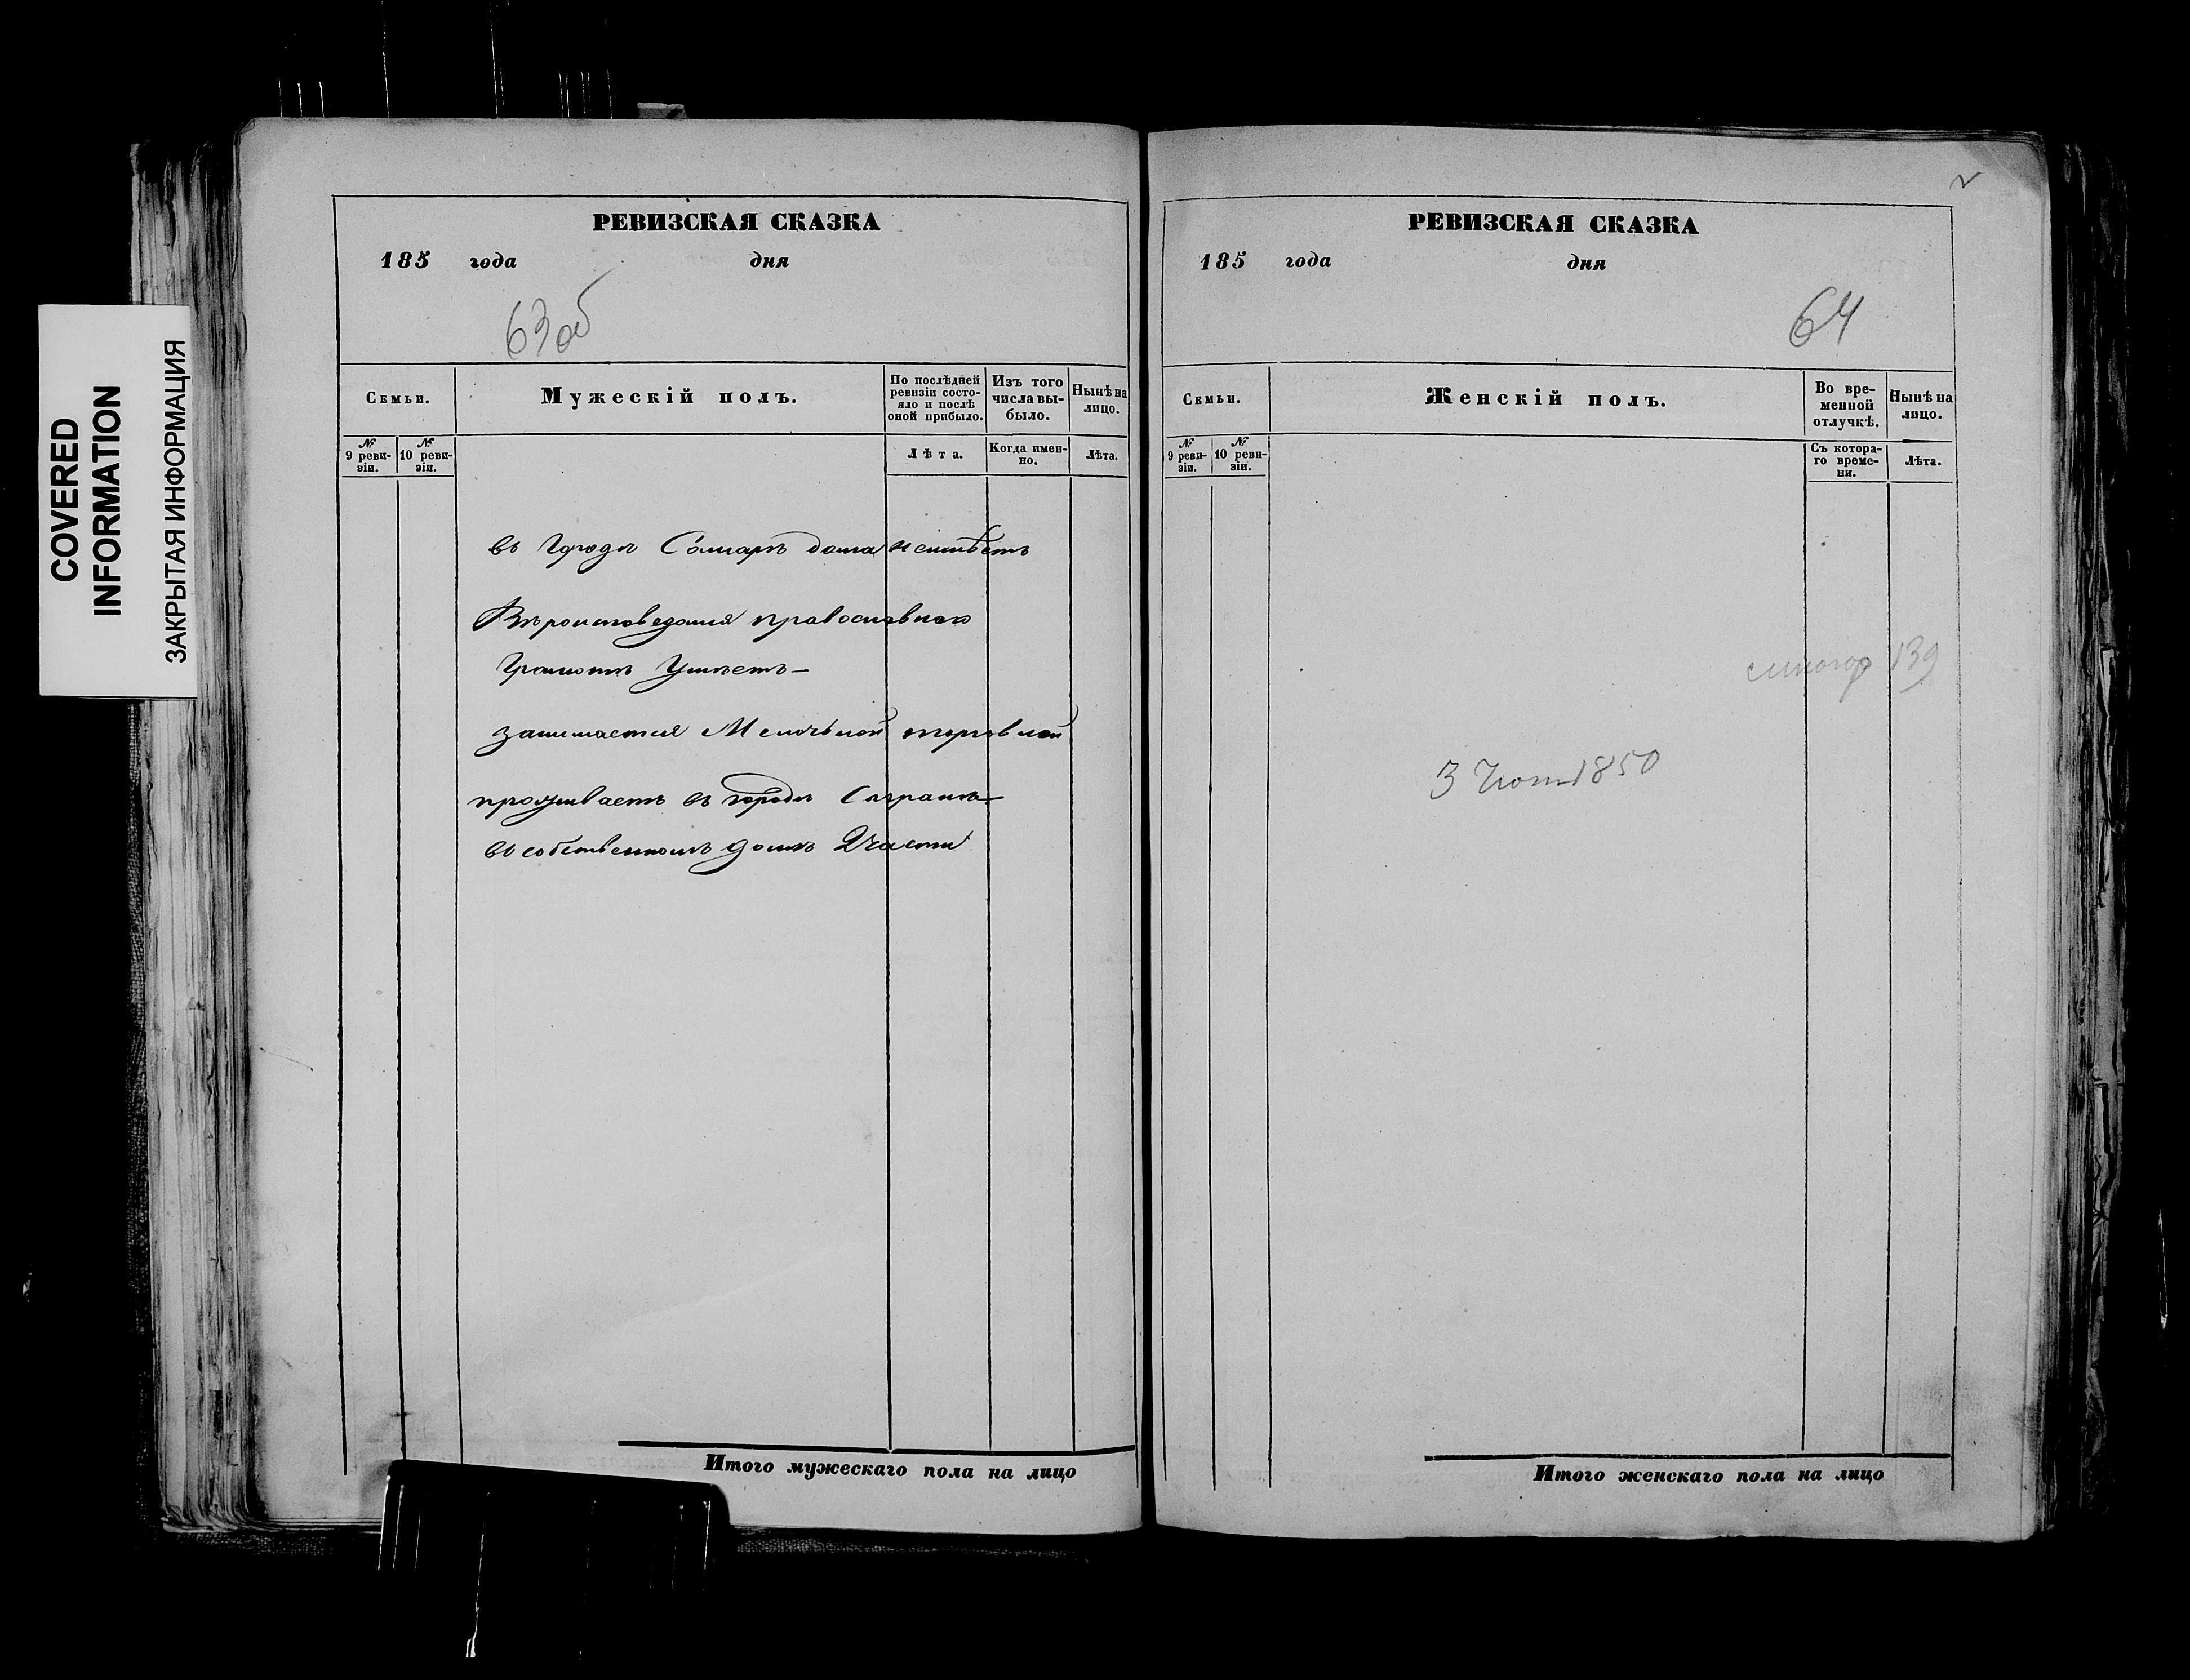 COVERED
INFORMATION
ЗАКРЫТАЯ ИНФОРМАЦИЯ
РЕВИЗСКАЯ СКАЗКА
185 года дня
63 об
Семьи.
Мужескій полъ.
По послѣдней ревизіи состояло и послѣ оной прибыло.
Изъ того числа выбыло.
Нынѣ на лицо.
№ 9 ревизіи.
№ 10 ревизіи.
Лѣта.
Когда именно.
Лѣта.
въ Городѣ Самарѣ дома неимѣетъ
Вѣроисповеданія православнаго
Грамотѣ Умѣетъ
занимается Мелочьной торговлей
проживаетъ въ городѣ Сызранѣ
въ собственномъ домѣ 2 части
Итого мужескаго пола на лицо
2
РЕВИЗСКАЯ СКАЗКА
185 года дня
64
Семьи.
Женскій полъ.
Во временной отлучкѣ.
Нынѣ на лицо.
№ 9 ревизіи.
№ 10 ревизіи.
Съ котораго времени.
Лѣта.
139
3 1850
Итого женскаго пола на лицо